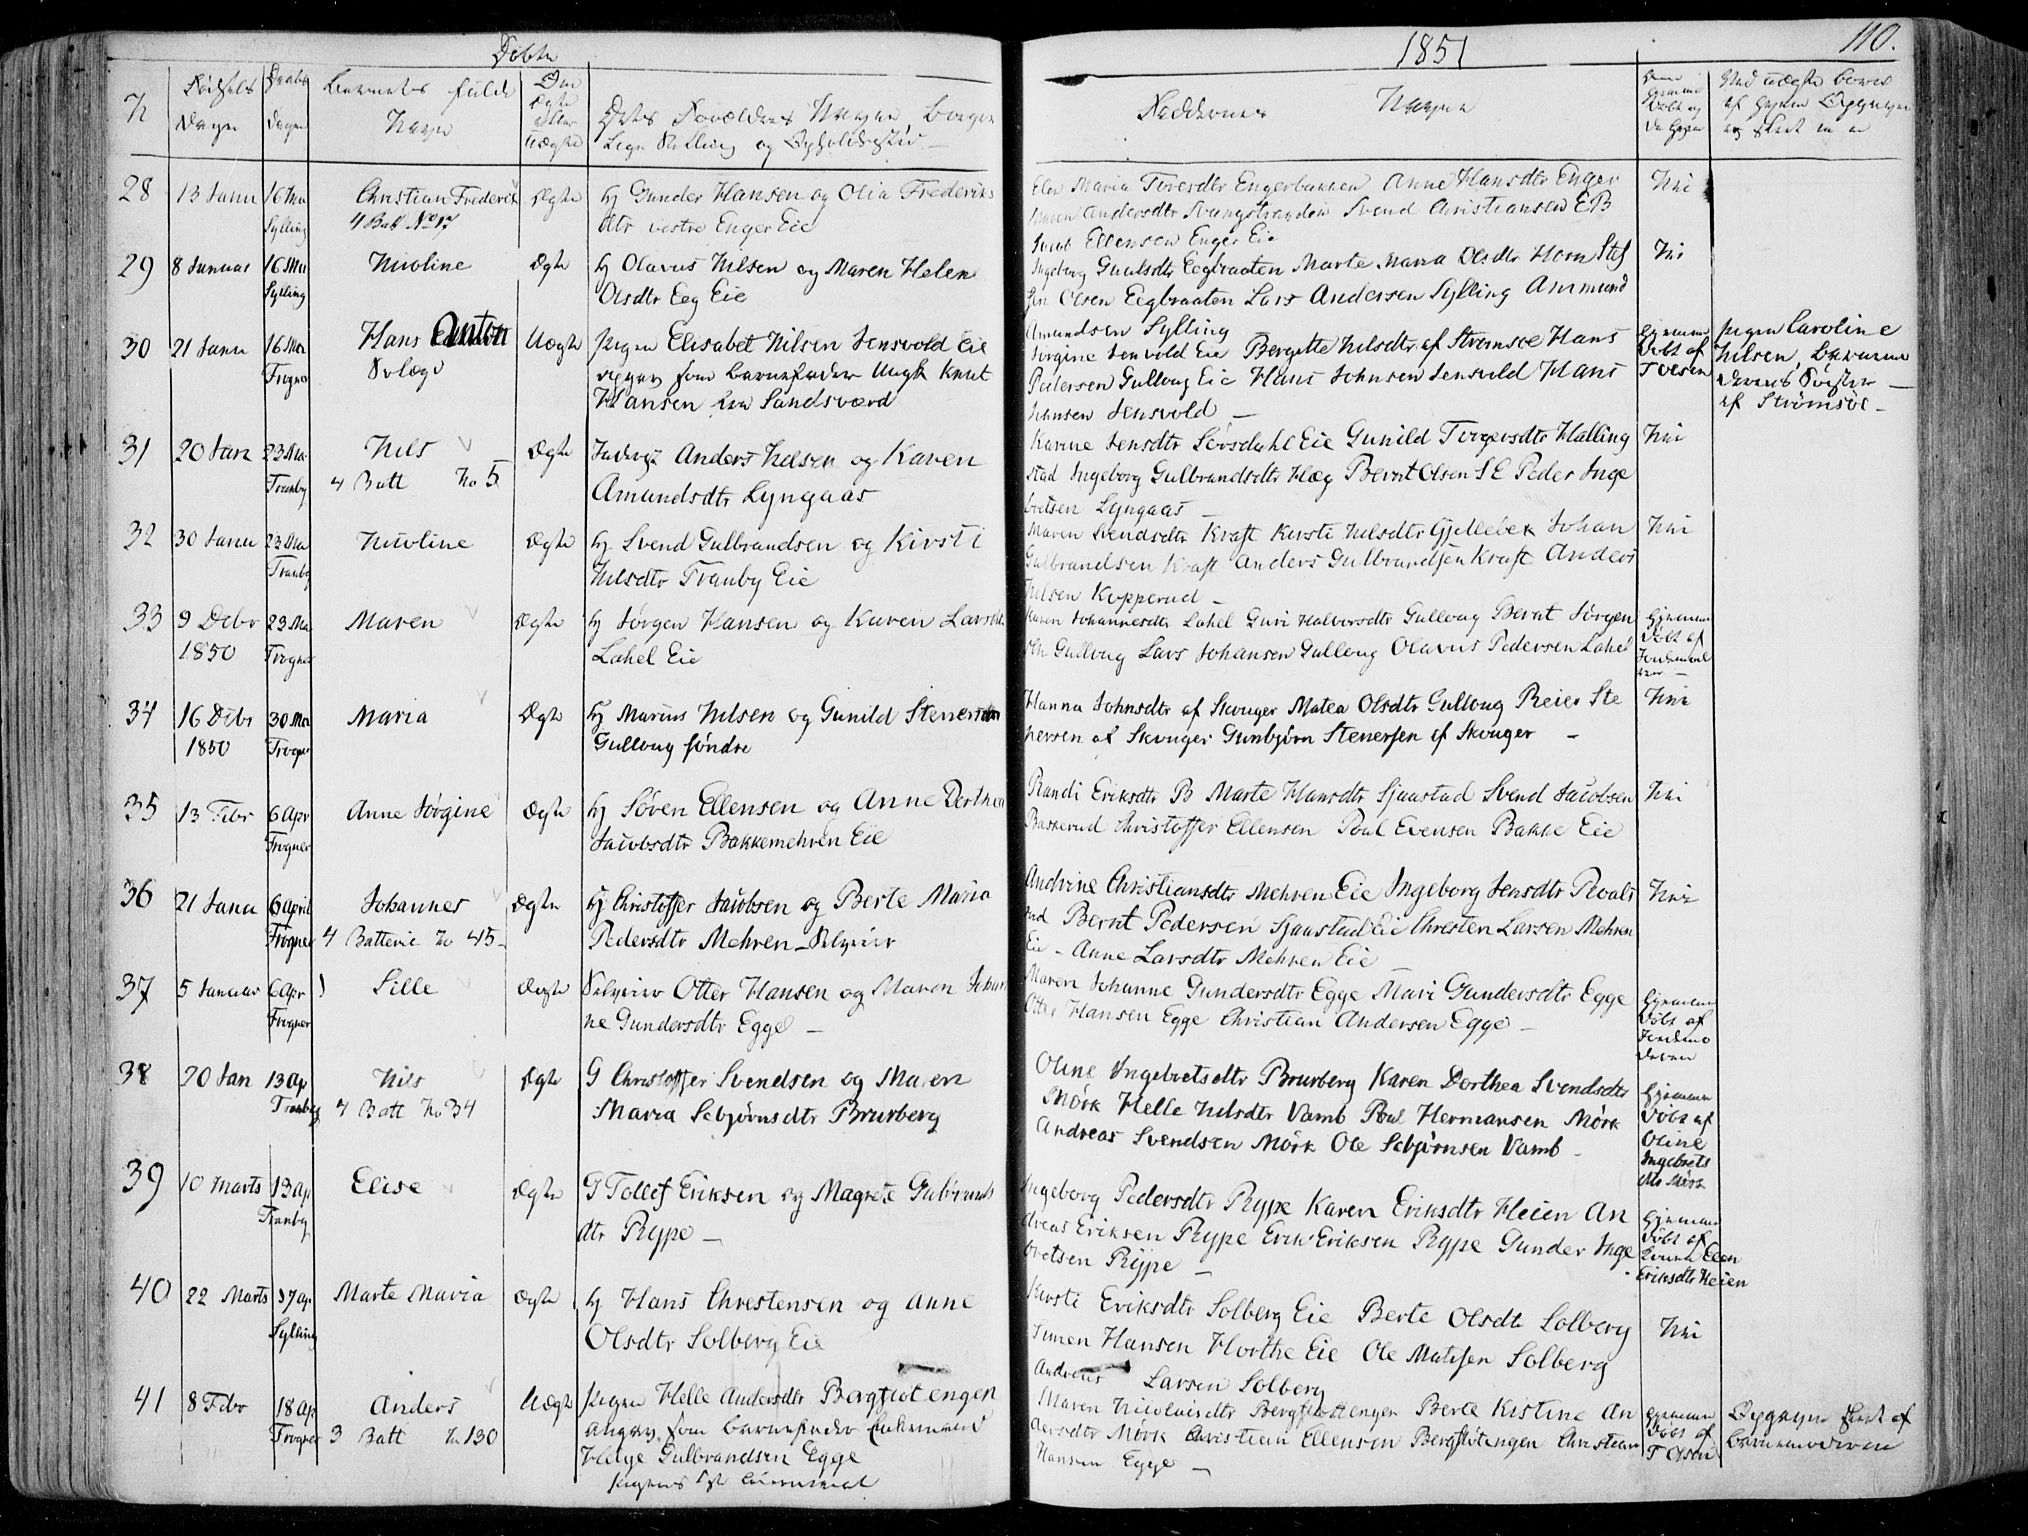 Døbte
1851
110.
N
Fødsels Dagen
Daabs dagen
Barnets fulde Navn
Om Ægte eller uægte
Faddernes Navne
28 13 Janu 16 Ma Sylling Christian Frederik Ægte Gunder Hansen og Olia Frederiks
4 Batt No 17 dtr vestre Enger Eie
Maria Toresdtr Engerbakken Anne Hansdtr Enger
Maren Andersdtr Svangstranden Svend Christiansen EB
Jacob Ellensen Enger Eie
Nei
29 8 Januar 16 Ma Sylling Nicoline Ægte Olavus Nilsen og Maren Helen
Olsdtr Eeg Eie
Ingeborg Eegbraaten Marte Maria Olsdtr Horn
Olsen Eegbraaten Lars Andersen Sylling Ammund
Amundsen Sylling
Nei
30 21 Janu 16 Ma Frogner Hans Anton Uægte Pigen Elisabet Nilsen Jensvold Eie
opgav som Barnefader Ungk Knut
Hansen fra Sandsværd
Jørgine Jensvold Eie Bergette Nilsdtr af Strømsøe Hans
Pedersen Gulloug Eie Hans Johnsen Jensvold Hans
Johnsen Jensvold
Hjemme Døbt af T Olsen
Pigen Caroline
Nilsen,
af Strømsøe
31 20 Jan 23 Ma Tranby Nils Ægte Anders Nilsen og Karen
4 Batt No 5 Amundsdtr Lyngaas
Karine Jensdtr Sørsdahl Eie Gunild Torgersdtr Halling
stad Ingeborg Gulbrandsdtr Hæg Bernt Olsen S E Peder Inge
bretsen Lyngaas
Nei
32 30 Janu 23 Ma Tranby Nicoline Ægte Svend Gulbrandsen og Kirsti
Nilsdtr Tranby Eie
Maren Svendsdtr Kraft Kirsti Nilsdtr Gjellebek Johan
Gulbrandsen Kraft Anders Gulbrandsen Kraft Anders
Nilsen Kopperud
Nei
33 9 Debr 1850 23 Ma Frogner Maren Ægte Jørgen Hansen og Karen Larsdtr
Lahel Eie
Karen Johannesdtr Lahel Guri Halvorsdtr Gulloug Bernt Jørgen
sen Gulloug Lars Johansen Gulloug Olavus Pedersen Lahel
Hjemme Døbt af
34 16 Debr 1850 30 Ma Frogner Maria Ægte Marius Nilsen og Gunild Stenersdtr
Gulloug søndre
Hanna Johnsdtr af Skouger Matea Olsdtr Gulloug Reier Ste
nersen af Skouger Gunbjørn Stenersen af Skouger
Nei
35 13 Febr 6 Apr Frogner Anne Jørgine Ægte Søren Ellensen og Anne Dorthea
Jacobsdtr Bakkemehren Eie
Randi Eriksdtr B Marte Hansdtr Sjaastad Svend Jacobsen
Baskerud Christoffer Ellensen Poul Evensen Bakke Eie
Nei
36 21 Janu 6 April Frogner Johannes Ægte Christoffer Jacobsen og Berte Maria
4 Batterie No 45 Pedersdtr Mehren
Andrine Christiansdtr Mehren Eie Ingeborg Jensdtr Roals
rud Bernt Pedersen Sjaastad Eie Chresten Larsen Mehren
Eie - Anne Larsdtr Mehren Eie
Nei
37 5 Januar 6 Apr Frogner Sille Ægte Otter Hansen og Maren Johan
ne Gundersdtr Egge
Maren Johanne Gundersdtr Egge Mari Gundersdtr Egge
Otter Hansen Egge Christian Andersen Egge
Hjemme Døbt af
38 20 Jan 13 Ap Tranby Nils Ægte G Christoffer Svendsen og Maren
4 Batt No 34 Maria Sebjørnsdtr Brurberg
Oline Ingebretsdtr Brurberg Karen Dorthea Svendsdtr
Mørk Helle Nilsdtr Vamb Poul Hermansen Mørk
Andreas Svendsen Mørk Ole Sebjørnsen Vamb
Hjemme Døbt af Oline Ingebrets dtr Mørk
39 10 Marts 13 Ap Tranby Elise Ægte G Tollef Eriksen og Magrete Gulbrands
dtr Rype
Ingeborg Pedersdtr Rype Karen Eriksdtr Heien An
dreas Eriksen Rype Erik Eriksen Rype Gunder Inge
bretsen Rype
Hjemme Døbt af Eriksdtr Heien
40 22 Marts 17 Ap Sylling Marte Maria Ægte Hans Chrestensen og Anne
Olsdtr Solberg Eie
Kirsti Eriksdtr Solberg Eie Berte Olsdtr Solberg
Simen Hansen Horthe Eie Ole Matisen Solberg
Andreas Larsen Solberg
Nei
41 8 Febr 18 Ap Frogner Anders Uægte Pigen Helle Andersdtr Bergflotengen
3 Batt No 130 angav som Barnefader Enkemand
Helge Gulbrandsen Egge
Maren Nicolaisdtr Bergflottengen Berte Kistine An
dersdtr Mørk Christian Ellensen Bergflotengen Christian
Hansen Egge
Hjemme Døbt af T Olsen
Opgaven skeet af
Barnemoderen